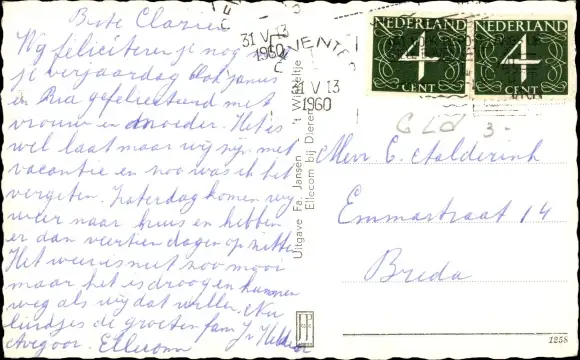 Beste Clazien
Wij feliciteren je nog met
je verjaardag Ook
en Ria gefeliciteerd met
vrouw en moeder. Het is
wel laat maar wij zijn met
vacantie en zoo was ik het
vergeten. Zaterdag komen wij
weer naar huis en hebben
er dan veertien dagen op zitten
Het weer is niet zoo mooi
maar het is droog en kunnen
weg als wij dat willen. Nu
luidjes de groeten fam
Avegoor. Ellecom
31 V 13
1960
DEVENTER
31 V 13
1960
NEDERLAND
4
CENT
NEDERLAND
4
CENT
GLD 3-
Uitgave Fa. Jansen 't Winkeltje
Ellecom bij Dieren
Mevr C. Aalderink
Emmastraat 14
Breda
1258